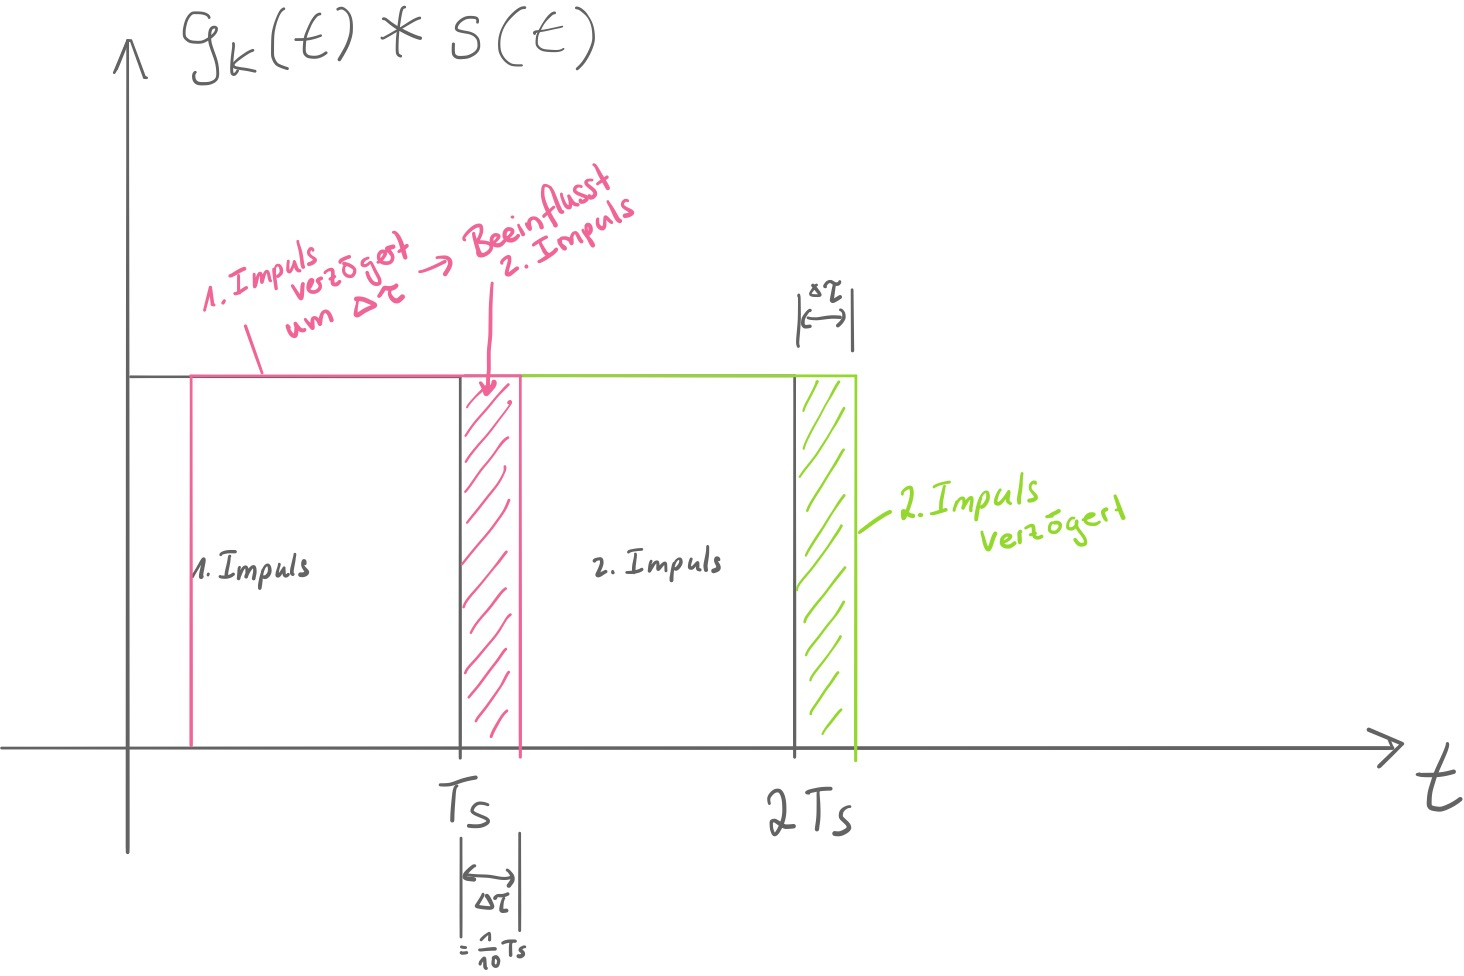 g_k(t) * s(t)
1. Impuls
verzögert
um Δτ
→ Beeinflusst
2. Impuls
Δτ
1. Impuls
2. Impuls
2. Impuls
verzögert
Ts
2Ts
t
Δτ
= 1/10 Ts